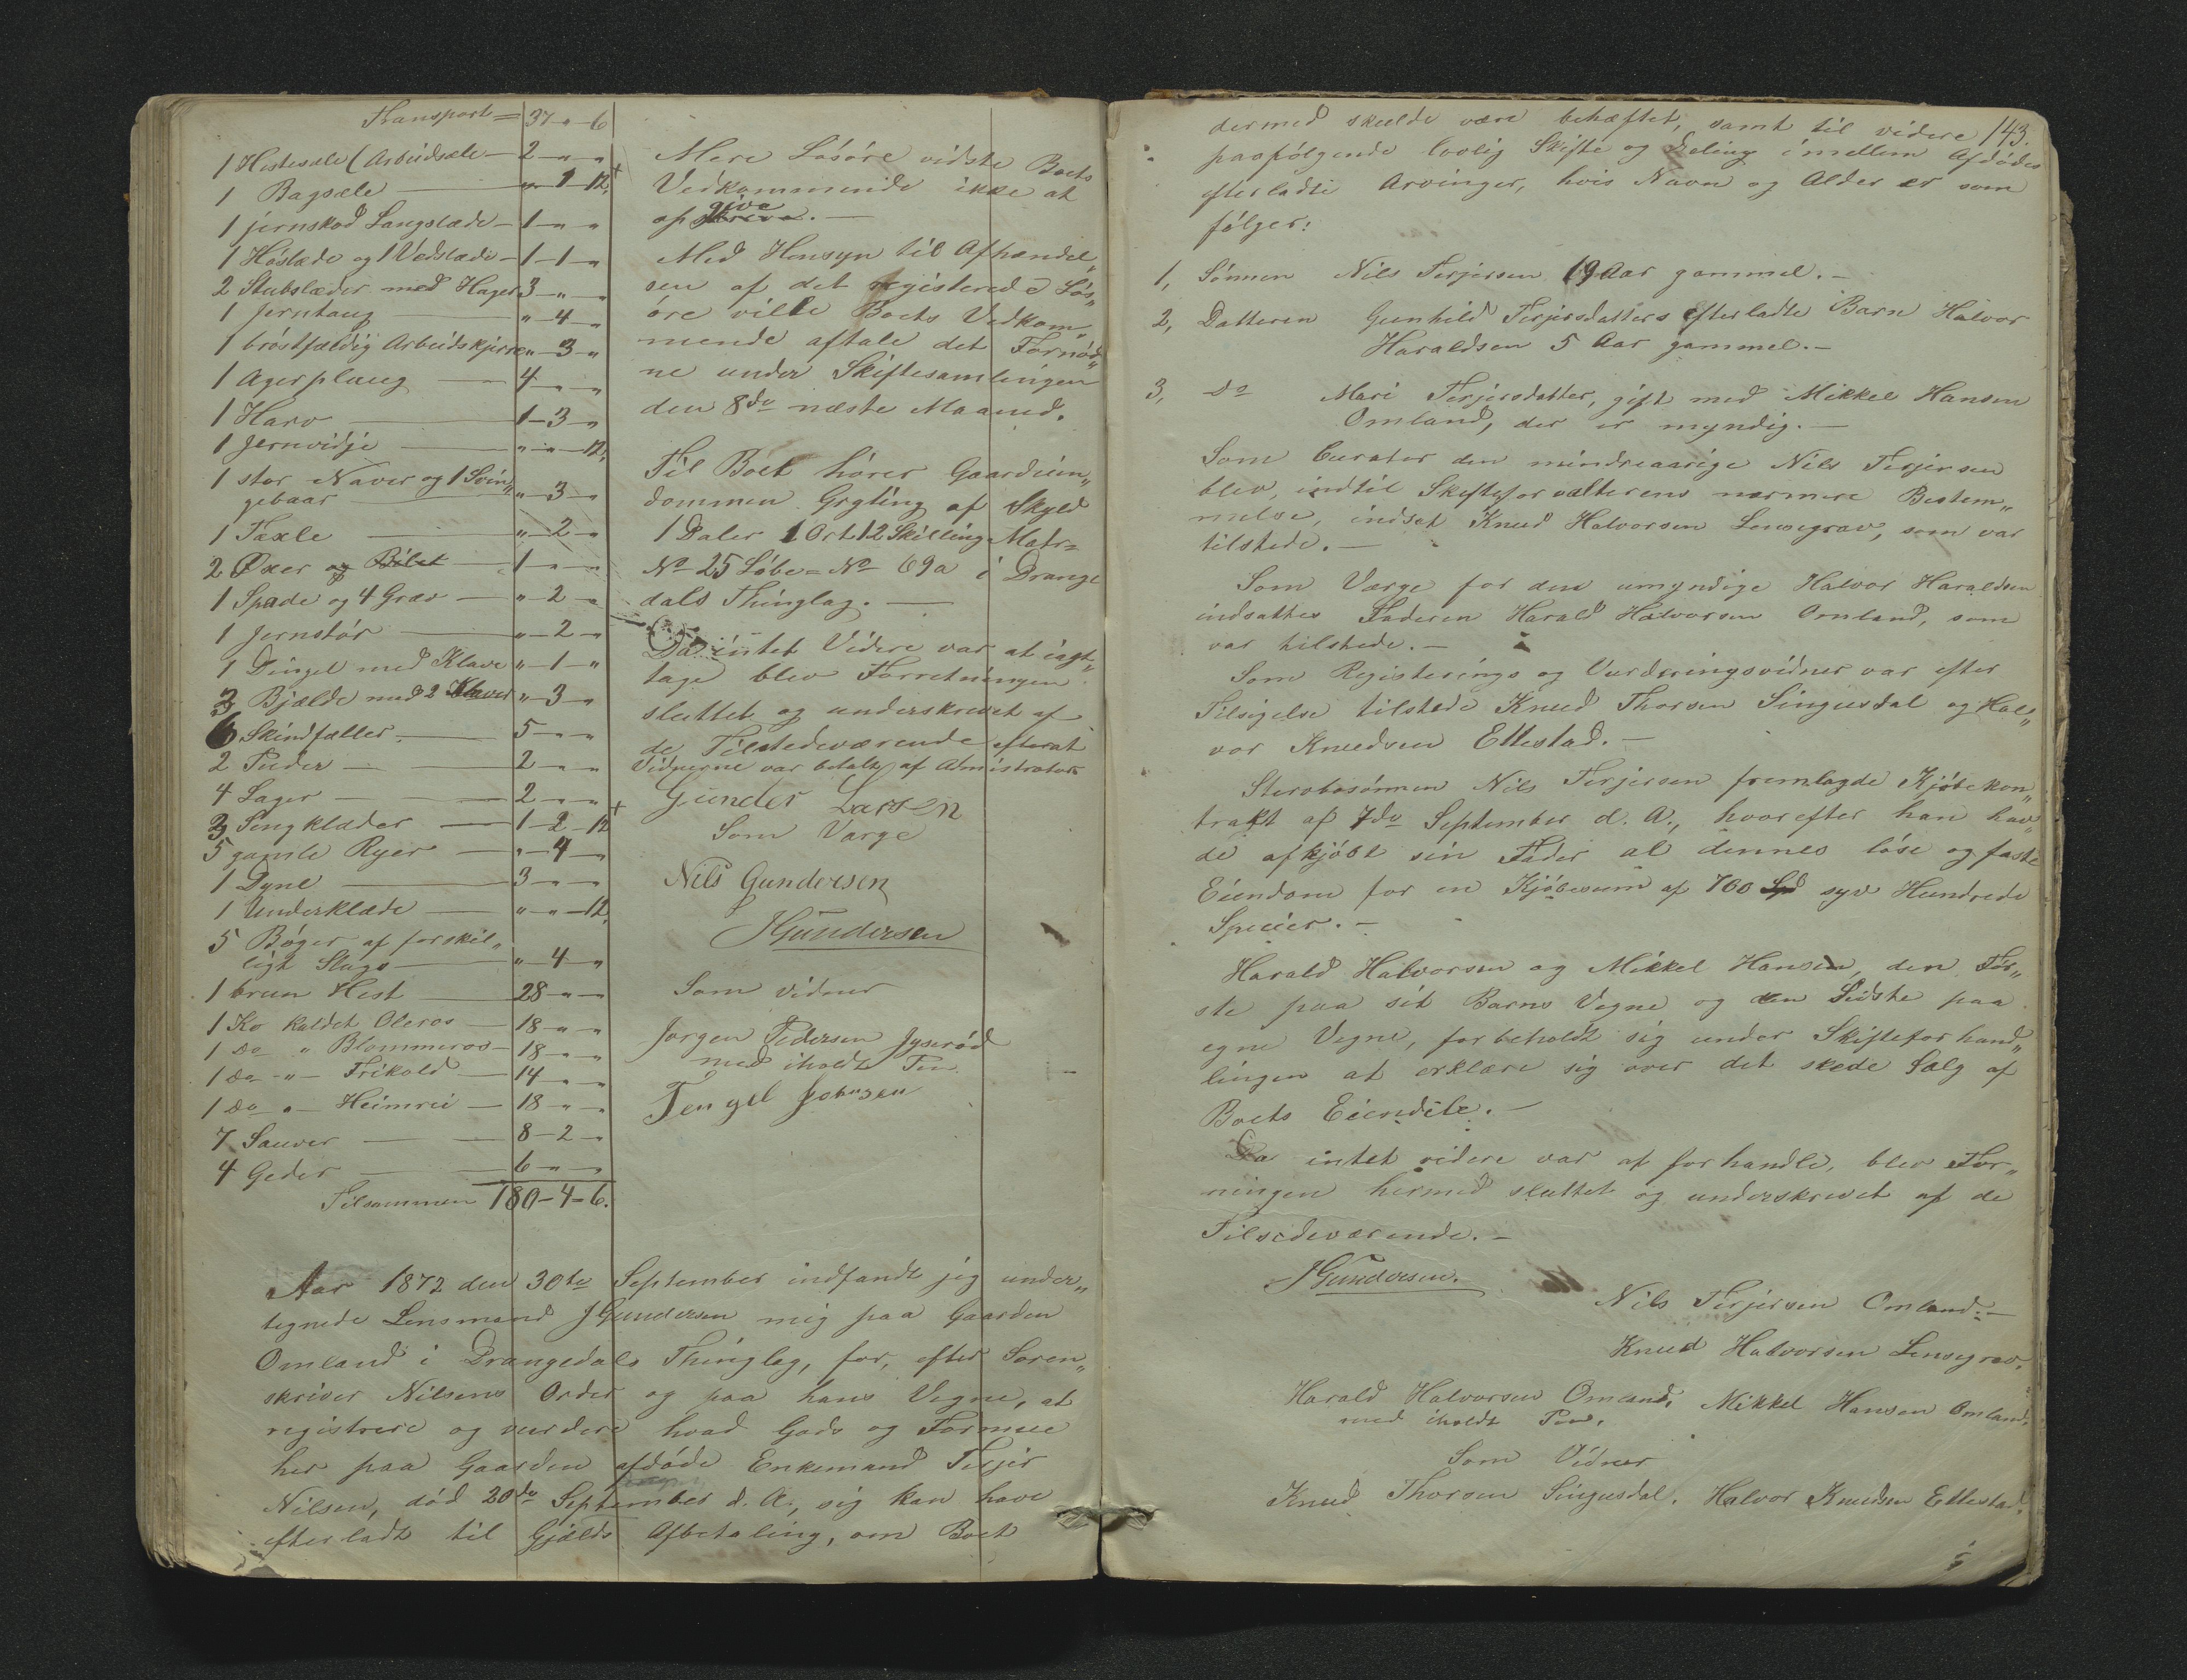 Transport = 37 - " - 6
1 Hestesæle (Arbeidsæle - 2 - " - "
1 Bagsæle - " - 1 - 12
1 jernskod Langslæde - 1 - " - "
1 Høslæde og 1 Vedslæde - 1 - 1 - "
2 Stubslæder med Hager 3 - " - "
1 Jerntaug - " - 4 - "
1 brøstfældig Arbeidskjerre " - 3 - "
1 Agerplaug - 4 - " - "
1 Harv - 1 - 3 - "
1 Jernvidje - " - " - 12
1 stor Naver og 1 Svin„
gebaar - " - 3 - "
1 Taxle - " - 2 - "
2 Øxer og Bilet - 1 - " - "
1 Spade og 4 Græv - " - 2 - "
1 Jernstør - " - 2 - "
1 Dingel med Klave " - 1 - "
3 Bjælde med 2 Klaver " - 3 - "
6 Skindfæller - 5 - " - "
2 Puder - 2 - " - "
4 Lager - 2 - " - "
3 Sengklæder - 1 - 2 - 12
5 gamle Ryer - " - 4 - "
1 Dyne - 3 - " - "
1 Underklæde - " - " - 12
5 Bøger af forskjel„
ligt Slags - " - 4 - "
1 brun Hest - 28 - " - "
1 Ko kaldet Oleros - 18 - " - "
1 do " Blommeros - 18 - " - "
1 do - " - Frikold - 14 - " - "
1 do " - Heimrei - 18 - " - "
7 Sauer - 8 - 2 - "
4 Geder - 6 - " - "
Tilsammen 180 - 4 - 6.
Mere Løsøre vidste Boets
Vedkommende ikke at
opgive. -
Med Hensyn til Afhændel„
sen af det registerede Løs„
øre ville Boets Vedkom„
mende aftale det Fornød„
ne under Skiftesamlingen
den 8de næste Maaned.
Til Boet hører Gaardeien„
dommen Grgting af Skyld
1 Daler 1 Ort 12 Skilling Matr=
No 25 Løbe=No 69a i Drange
dals Thinglag. -
Da intet Videre var at iagt„
tage blev Forretningen
sluttet og underskrevet af
de Tilstedeværende efterat
Vidnerne var betalt af Administrator
Gunder Larsen
Som Værge
Nils Gundersen
JGundersen
Som vidner
Jørgen Pedersen Gyserød
med iholdt Pen
Tengel Johnsen
Aar 1872 den 30te September indfandt jeg under„
tegnede Lensmand JGundersen mig paa Gaarden
Omland i Drangedals Thinglag, for, efter Soren„
skriver Nilsens Order og paa hans Vegne, at
registrere og vurdere hvad Gods og Formue
her paa Gaarden afdøde Enkemand Terjer
Nilsen, død 20de September d. A., sig kan have
efterladt til Gjælds Afbetaling, om Boet
143.
dermed skulde være behæftet, samt til videre
paafølgende lovlig Skifte og Deling imellem Afdødes
efterladte Arvinger, hvis Navn og Alder er som
følger:
1, Sønnen Nils Terjersen 19 Aar gammel. -
2, Datteren Gunhild Terjersdatters efterladte Barn Halvor
Haraldsen 5 Aar gammel. -
3, Do Mari Terjersdatter, gift med Mikkel Hansen
Omland, der er myndig. -
Som Curator den mindreaarige Nils Terjersen
blev, indtil Skifteforvalterens nærmere Bestem„
melse, indsat Knud Halvorsen Lensegrav, som var
tilstede. -
Som Værge for den umyndige Halvor Haraldsen
indsattes Faderen Harald Halvorsen Omland, som
var tilstede. -
Som Registerings og Vurderingsvidner var efter
Tilsigelse tilstede Knud Thorsen Singusdal og Hal„
vor Knudsen Ettestad. -
Stervbosønnen Nils Terjersen fremlagde Kjøbekon„
trakt af 7de September d. A., hvorefter han hav„
de afkjøbt sin Fader al dennes løse og faste
Eiendom for en Kjøbesum af 700 Spd syv Hundrede
Specier. -
Harald Halvorsen og Mikkel Hansen, den Før„
ste paa sit Barns Vegne og den Sidste paa
egne Vegne, forbeholdt sig under Skifteforhand„
lingen at erklære sig over det skede Salg af
Boets Eiendele. -
Da intet videre var at forhandle, blev For„
ningen hermed sluttet og underskrevet af de
Tilsedeværende. -
JGundersen.
Nils Terjersen Omland. -
Knud Halvorsen Lensegrav.
Harald Halvorsen Omland, Mikkel Hansen Omland,
med iholdt Pen.
Som Vidner
Knud Thorsen Singusdal. Halvor Knudsen Ettestad.